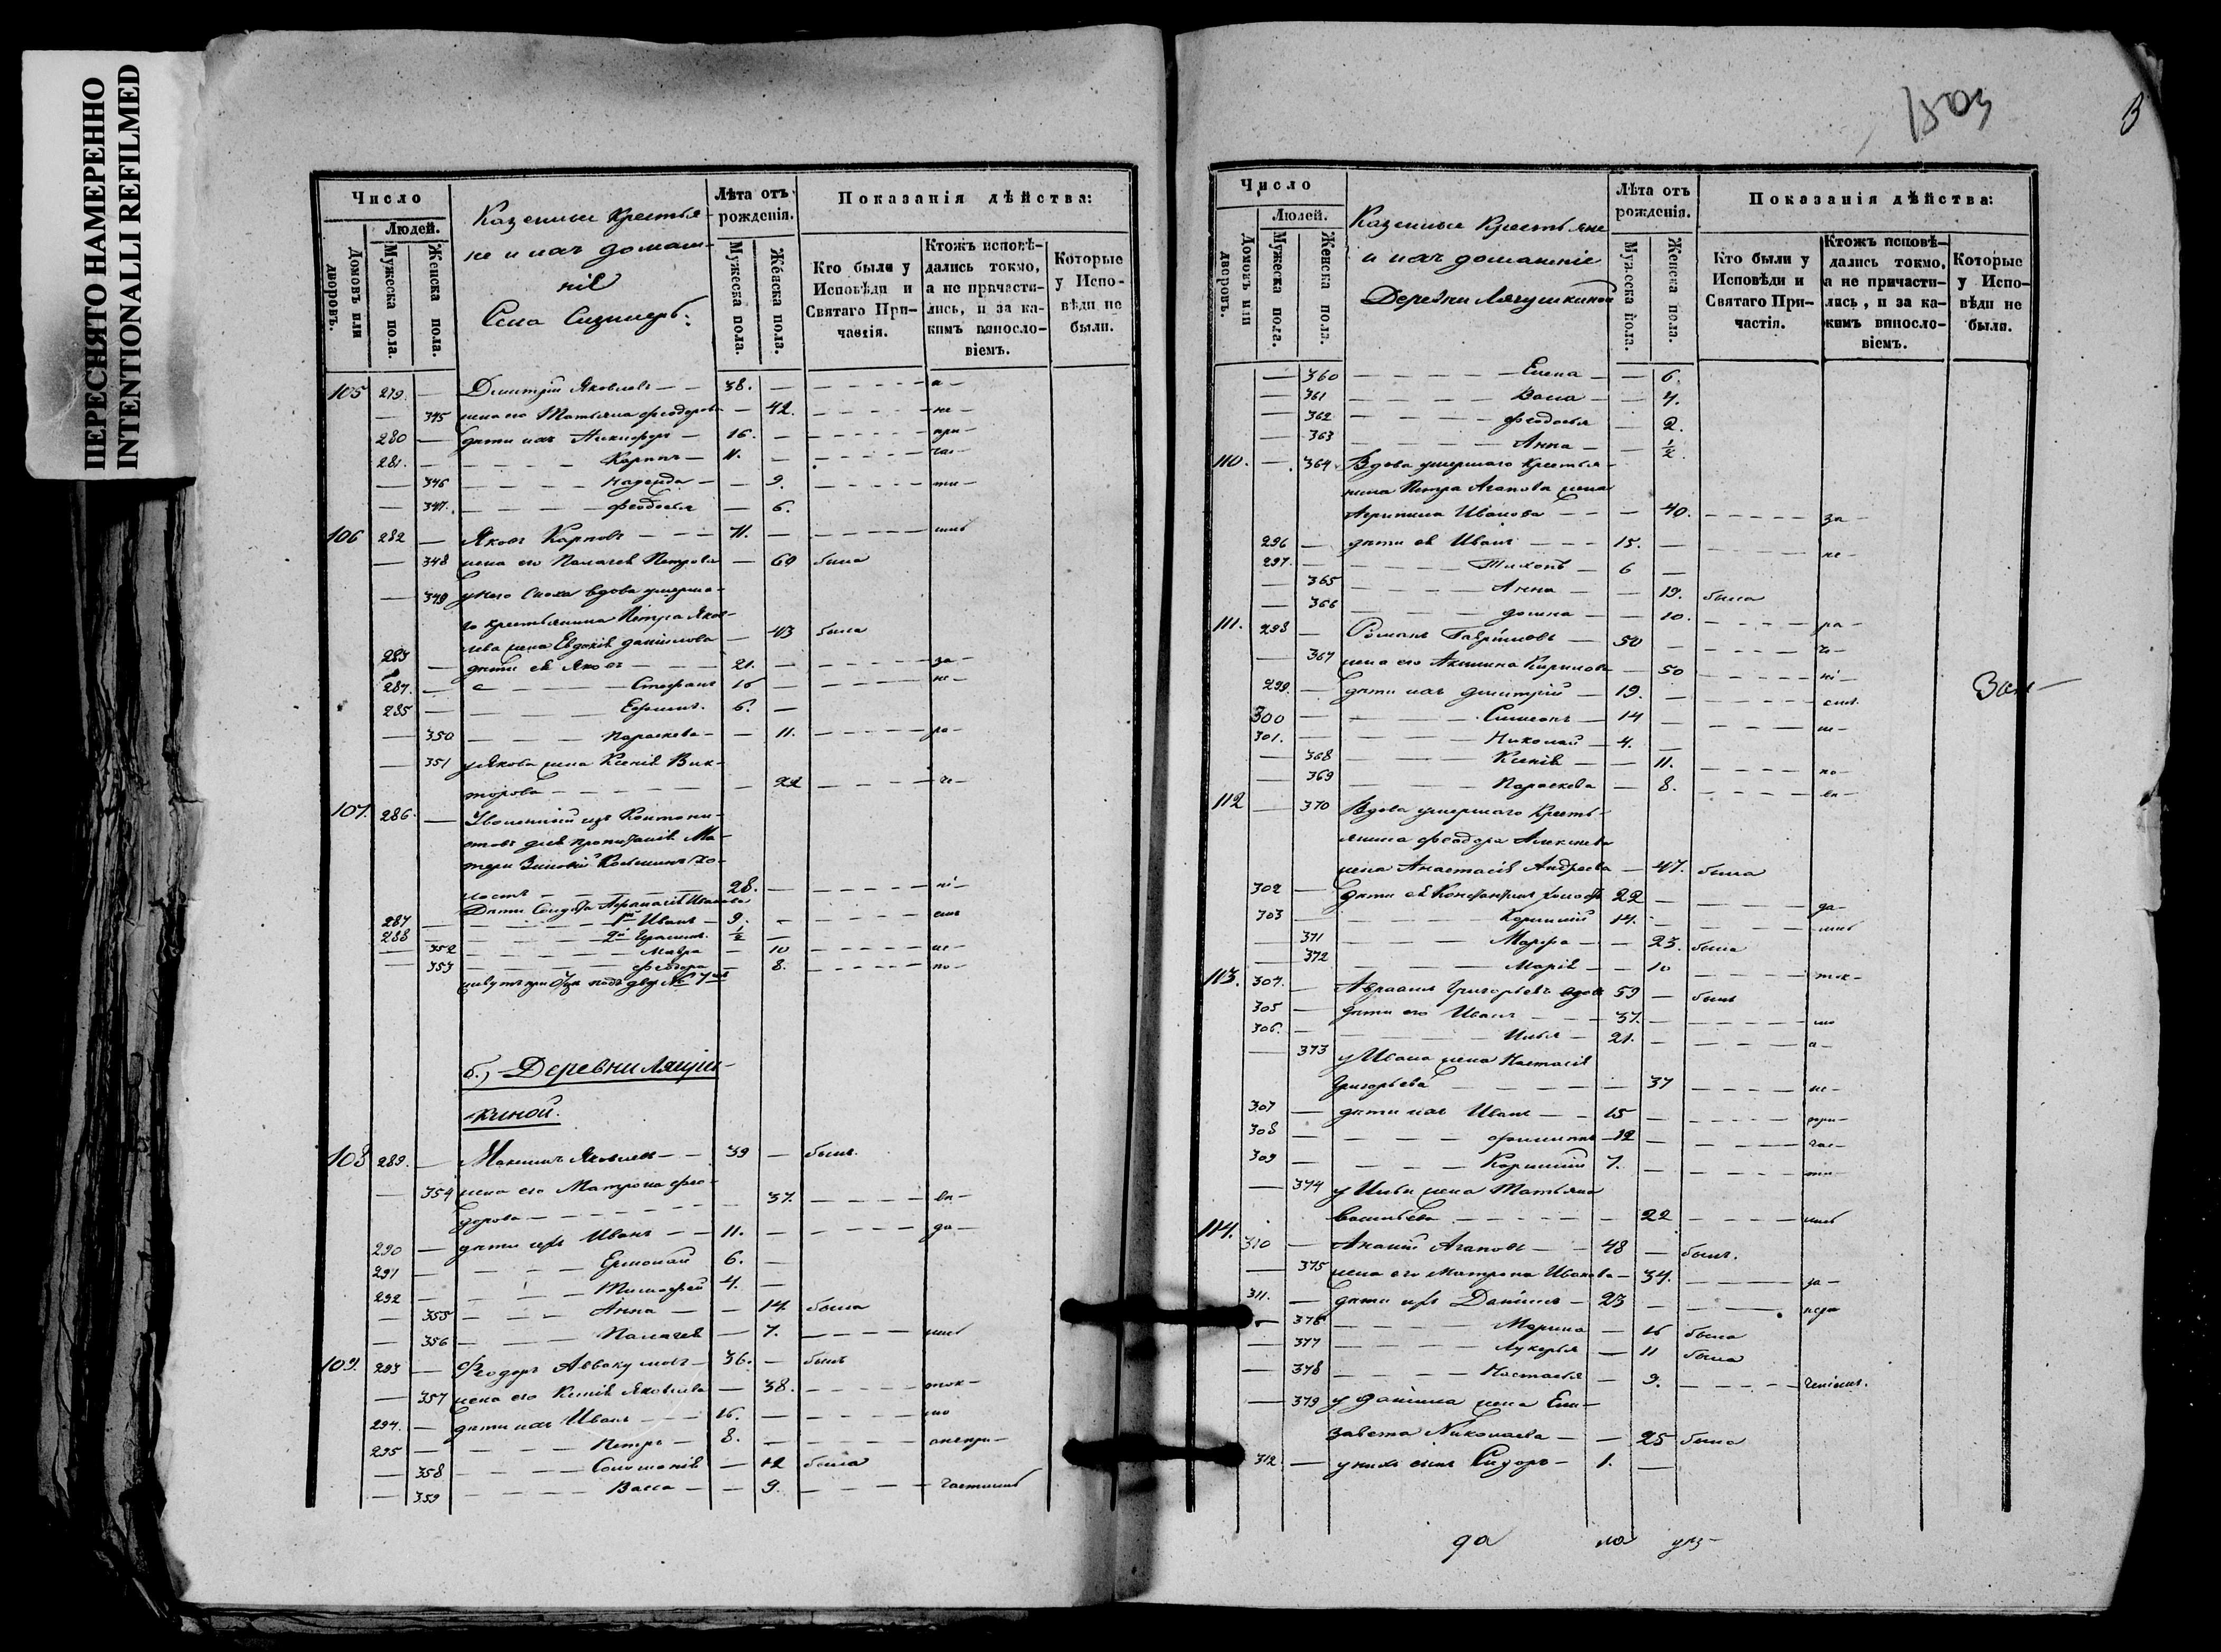 ПЕРЕСНЯТО НАМЕРЕННО
INTENTIONALLI REFILMED
Число
Людей.
Домовъ или дворовъ.
Мужеска пола.
Женска пола.
Казенные крестья-
не и ихъ домаш-
ніе
Села
Лѣта отъ рожденія.
Мужеска пола.
Женска пола.
Показанія дѣйства:
Кто были у Исповѣди и Святаго При-частія.
Ктожъ исповѣ-дались токмо, а не причасти-лись, и за ка-кимъ виносло-віемъ.
Которые у Испо-вѣди не были.
105 279. — Дмитрій Яковлевъ — — 38. — — — — — а —
— 345 жена его Татьяна Феодорова — 42. — — — — не —
280 — дѣти ихъ Никифоръ — 16. — — — — — при —
281. — — — — — Карпъ — 11. — — — — — час —
— 346 — — — — Надежда — — 9. — — — — ти —
— 347. — — — — Феодосья — 6.
106 282 — Яковъ Карповъ — — — 71. — — — — — шись
— 348 жена его Пелагея Петрова — 69 была
— 349 у него сноха вдова умерша-
го крестьянина Петра Яков-
лева жена Евдокія Данилова — 43 была
283 — дѣти ея Яковъ — — — 21. — — — — — за —
284. — — — — Стефанъ 16 — — — — — не —
285 — — — — Ефимъ. 6. —
— 350 — — — Параскева — — 11. — — — — ра —
— 351 у Якова жена Ксенія Вик-
торова — — — — — — 22 — — — че —
107. 286. — Уволенный изъ Кантони-
стовъ для пропитанія Ма-
тери Зиновій
— — — — 28. — — — — — ні —
Дѣти Солдата Афанасія Иванова
287 — — — — 1й Иванъ — 9. — — — — — емъ
288 — — — — 2й ½ —
— 352 — — — — Мавра — 10 — — — — не —
— 353 — — — — Феодора — 8. — — — — по —
б., Деревни Лягуш-
киной.
108 289. — Максимъ Яковлевъ — — 39 — былъ.
— 354 жена его Матрона Фео-
дорова — — — — — — 37. — — — — бы —
290 — дѣти ихъ Иванъ — — 11. — — — — — да —
291 — — — — Ермолай 6. —
292 — — — — Тимофей 4. —
— 355 — — — Анна — — 14. была
— 356 — — — — Пелагея — 7. — — — — шись
109. 293 — Феодоръ Аввакумовъ — 36. — былъ
— 357 жена его Ксенія Яковлева — 38. — — — — ток —
294. — дѣти ихъ Иванъ — — 16. — — — — — мо
295 — — — — Петръ — 8. — — — — — анепри —
— 358 — — — — Соломонія — 12 была
— 359 — — — — Васса — — 9. — — — — частились
Число
Людей.
Домовъ или дворовъ.
Мужеска пола.
Женска пола.
Казенные Крестьяне
и ихъ домашніе
Деревни Лягушкиной
Лѣта отъ рожденія.
Мужеска пола.
Женска пола.
Показанія дѣйства:
Кто были у Исповѣди и Святаго При-частія.
Ктожъ исповѣ-дались токмо, а не причасти-лись, и за ка-кимъ виносло-віемъ.
Которые у Испо-вѣди не были.
— 360 — — — — — Елена — — 6.
— 361 — — — — — Васса — — 4.
— 362 — — — — — Феодосья — 2.
— 363 — — — — — Анна — — ½.
110. — 364 Вдова умершаго крестья-
нина Петра Агапова жена
Агрипина Иванова — — — 40. — — — — за —
296 — дѣти ея Иванъ — — — 15. — — — — — не —
297. — — — — — Тихонъ — 6 —
— 365 — — — — Анна — — 19. была
— 366 — — — — Домна — — 10. — — — — ра —
111. 298 — Романъ Гаврииловъ — 50 — — — — — че —
— 367 жена его Акилина Кирилова — 50 — — — — ні —
299. — дѣти ихъ Дмитрій — 19. — — — — — емъ.
300 — — — — — Симеонъ — 14 — — — — — не —
301. — — — — Николай — 4. —
— 368 — — — Ксенія — — 11. — — — — по —
— 369 — — — — Параскева — 8. — — — — бы —
112 — 370 Вдова умершаго кресть-
янина Феодора Алексѣева
жена Анастасія Андреева — 47. была
302 — дѣти ея Константинъ холостъ 22 — — — — — да —
303 — — — — — Корнилій 14. — — — — — шись
— 371 — — — Марфа — — 23. была
— 372 — — — Марія — — 10 — — — — ток —
113. 304. — Авраамъ Григорьевъ вдовъ 59 — былъ
305 — дѣти его Иванъ — — — 37. — — — — — мо
306. — — — — — Илья — 21. — — — — — а —
— 373 у Ивана жена Настасія
Григорьева — — — — — 37 — — — — не —
307 — дѣти ихъ Иванъ — — 15 — — — — — при —
308 — — — — Филиппъ — 12 — — — — — час —
309 — — — — Корнилій 7. — — — — — ти —
— 374 у Ильи жена Татьяна
Васильева — — — — — 22 — — — — шись
114. 310 — Ананій Агаповъ — — 48 — былъ.
— 375 жена его Матрона Иванова — 34. — — — — за —
311. — дѣти ихъ Даніилъ — 23 — — — — — нера
— 376 — — — — Марина — 16 была
— 377 — — — — Лукерья — 11 была
— 378 — — — — Настасья — 9. — — — — ченіемъ.
— 379 у Даніила жена Ели-
завета Николаева — — 25 была
312 — у нихъ сынъ Сидоръ — 1. —
да на